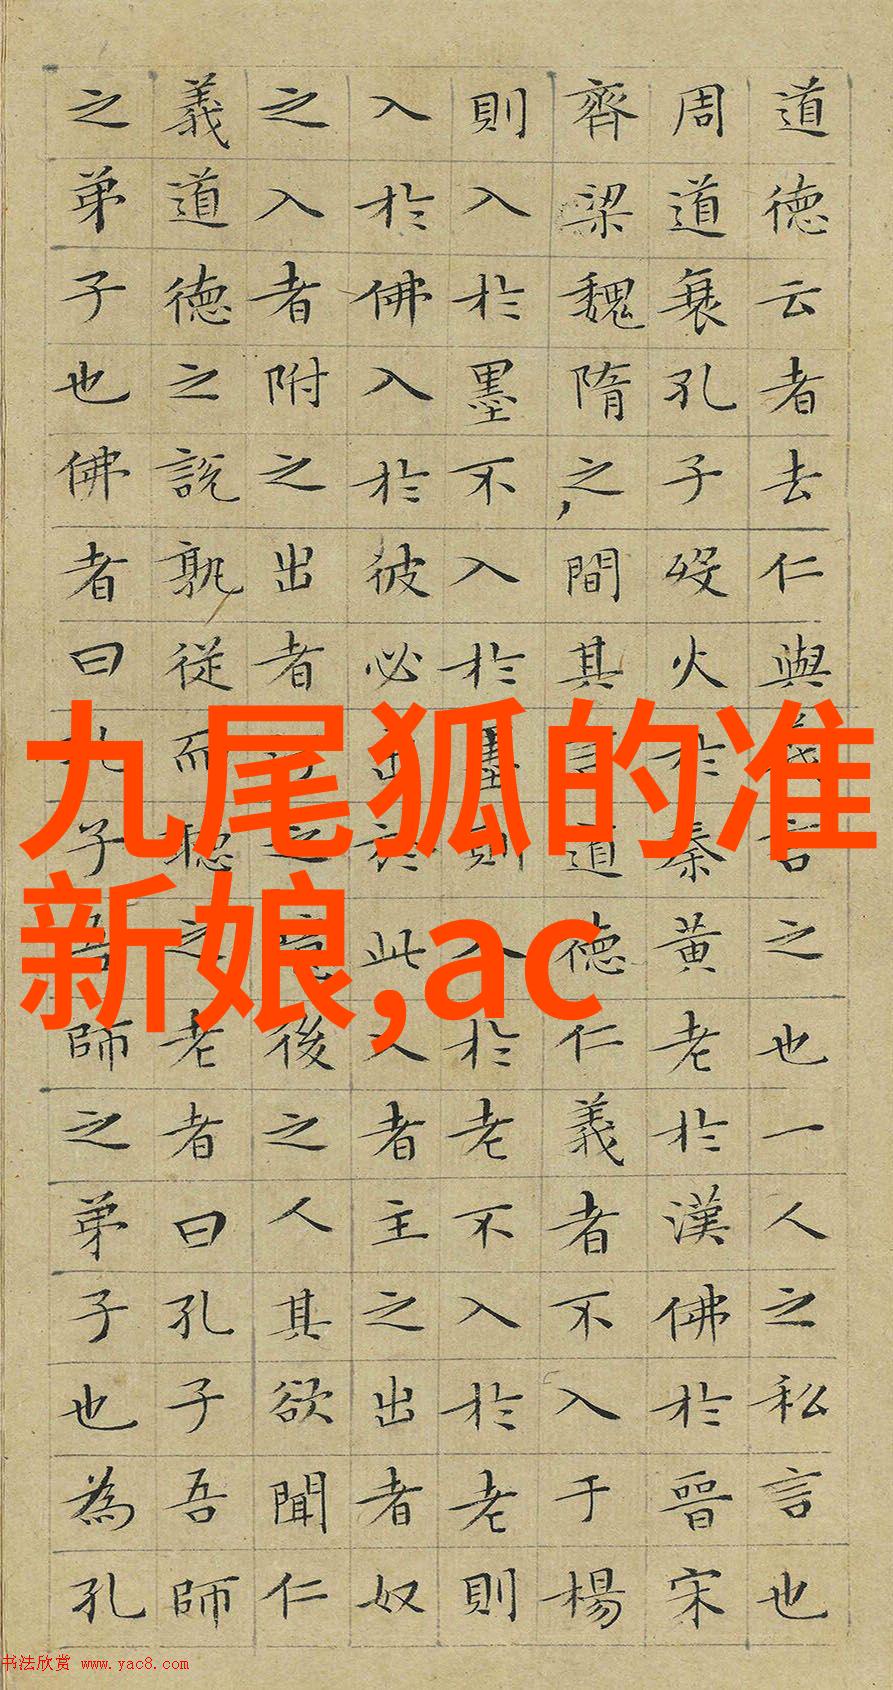 道德云者去仁與義言之也一人之私言也
周道衰孔子歿火於秦黃老於漢佛於晉宋
齊梁魏隋之間其言道德仁義者不入于楊
則入於墨不入於墨則入於老不入於老則
入於佛入於彼必出於此入者主之出者奴
之入者附之出者之噫後之人其欲聞仁
義道德之說孰從而聽之老者曰孔子吾師
之弟子也佛者曰孔子吾師之弟子也為孔
九尾狐的准
新娘,ac
书法欣赏 www.yac8.com